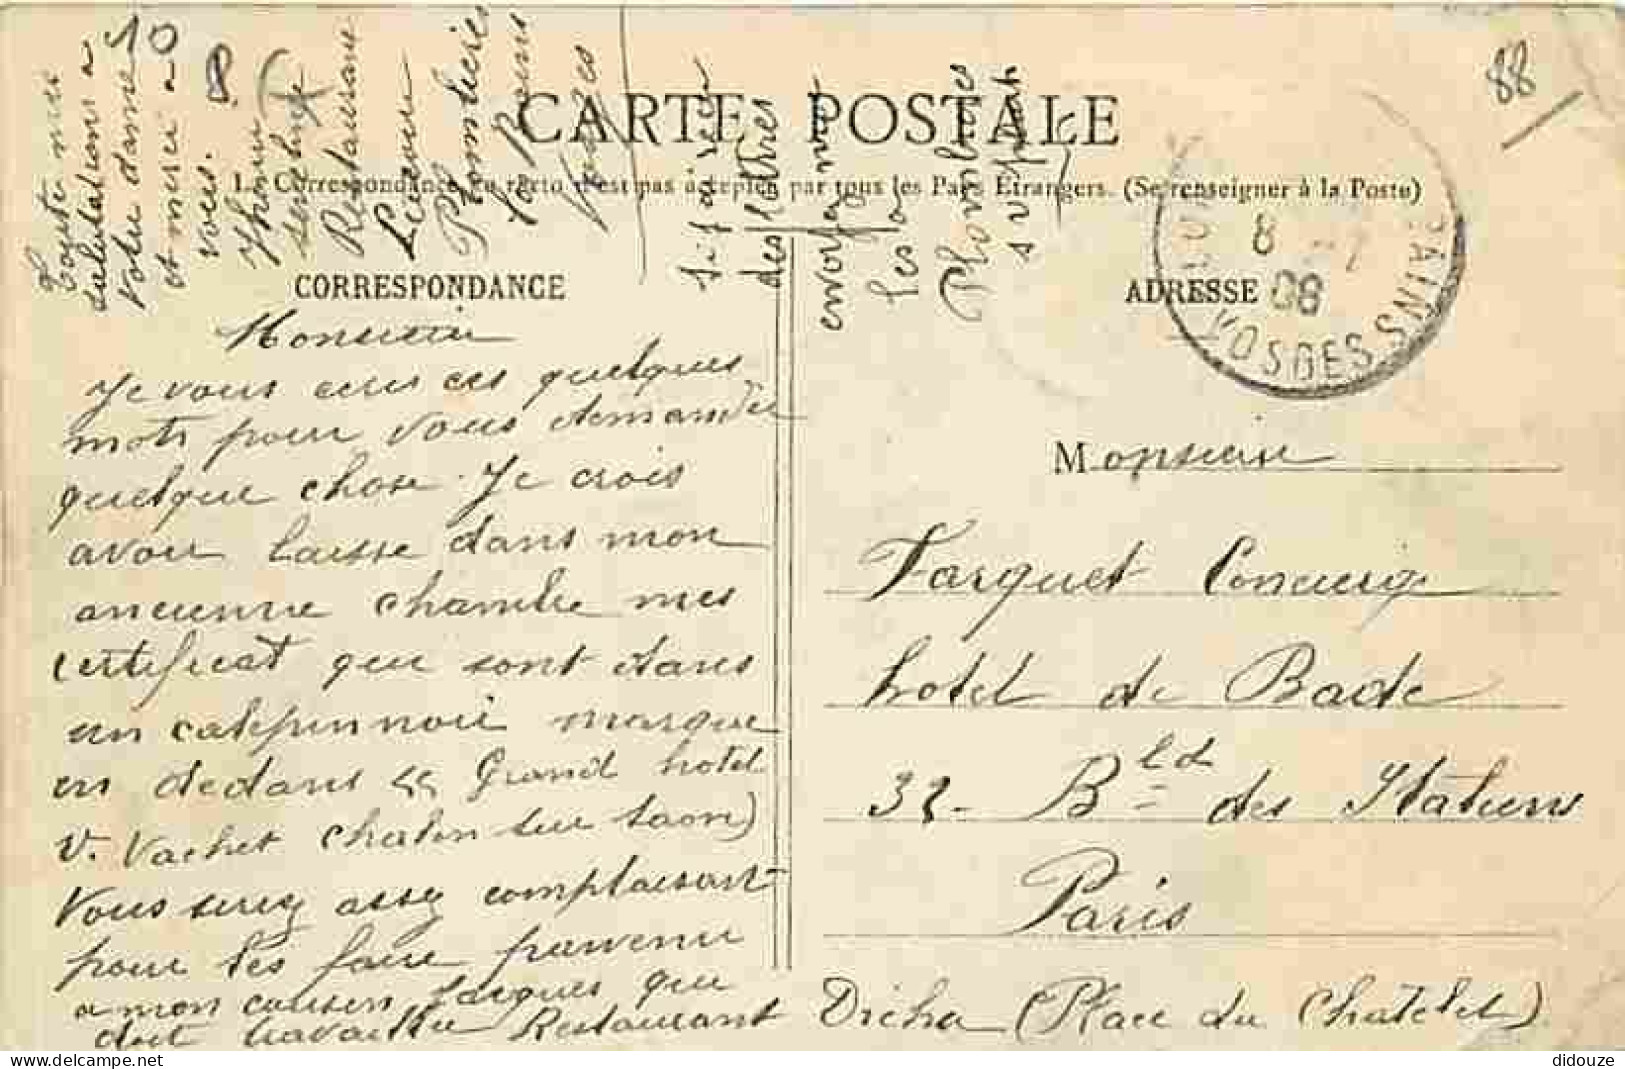 CARTE POSTALE
La Correspondance au recto n'est pas acceptée par tous les Pays Etrangers. (Se renseigner à la Poste)
CORRESPONDANCE
ADRESSE
Monsieur
Je vous ecris ces quelques
mots pour vous demander
quelque chose. Je crois
avoir laisse dans mon
ancienne chambre mes
certificat qui sont dans
un calepin noir marque
en dedans Grand hotel
V. Vachet Chalon sur Saon)
Vous serez assez complaisant
pour les faire parvenir
a mon cousin Jacques qui
doit travailler Restaurant Dreher (Place du Chatelet)
Toute mes
salutations a
votre dame
et merci a
vous.
serlurge
Restaurant
Plombieres
les Bains
Vosges
Si j'ai reçu
des lettres
envoyer
les a
Plombieres
s v plait
Monsieur
Farguet Concierge
hotel de Bade
32 - Bld des Italiens
Paris
10
8
88
8 - 7
08
BAINS
VOSGES
didouze